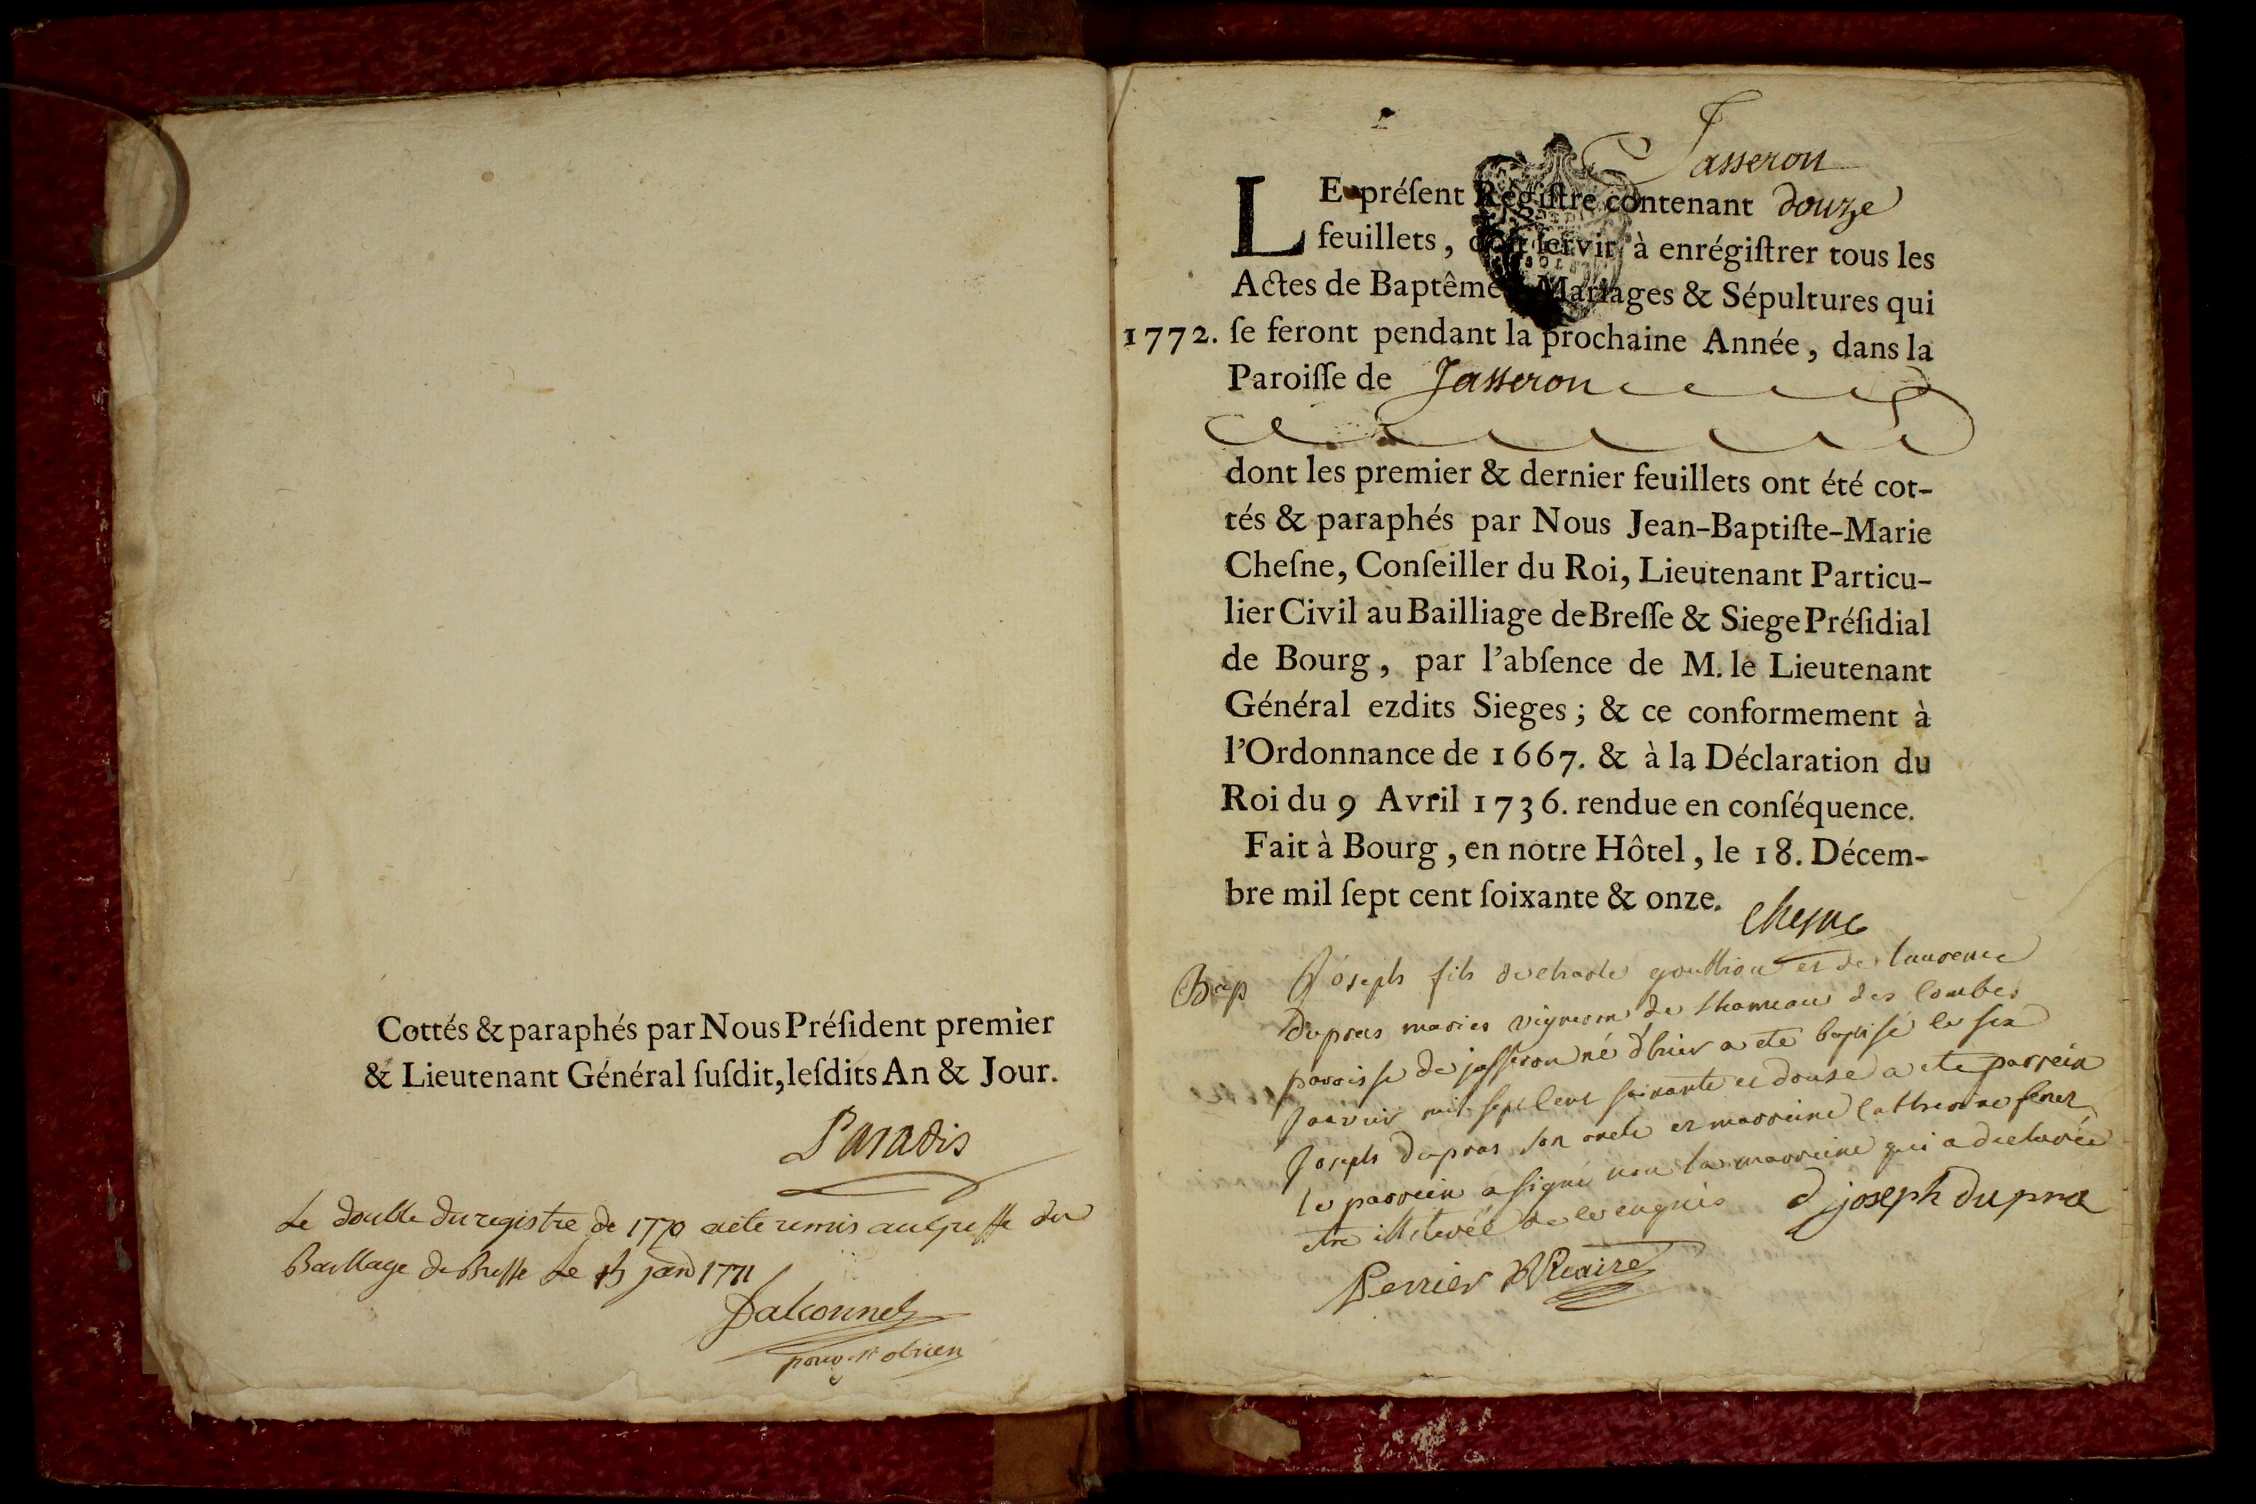 Cottés & paraphés par Nous Préſident premier
& Lieutenant Général ſuſdit, leſdits An & Jour.
Paradis
Le double du registre de 1770 a ete remis au Greffe du
Baillage de Bresse Le 15 janv 1771
Jasseron
LE préſent Régiſtre contenant douze
feuillets, doit ſervir à enrégiſtrer tous les
Actes de Baptêmes, Mariages & Sépultures qui
1772. ſe feront pendant la prochaine Année, dans la
Paroiſſe de Jasseron
dont les premier & dernier feuillets ont été cot-
tés & paraphés par Nous Jean-Baptiſte-Marie
Cheſne, Conſeiller du Roi, Lieutenant Particu-
lier Civil au Bailliage de Breſſe & Siege Préſidial
de Bourg, par l'abſence de M. le Lieutenant
Général ezdits Sieges; & ce conformement à
l'Ordonnance de 1667. & à la Déclaration du
Roi du 9 Avril 1736. rendue en conſéquence.
Fait à Bourg, en notre Hôtel, le 18. Décem-
bre mil ſept cent ſoixante & onze.
Chesne
Bap Joseph fils de charle gouthion et de laurence
dupras maries vigneron de lhameau des Combes
paroisse de jasseron né d'hier a ete baptisé le six
Janvier mil sept cent soixante et douse a ete parrein
Joseph dupras son oncle et marreine Catherine
le parrein a signé non la marreine qui a declarée
etre illiterée de ce enquis d joseph dupra
Perrier Vicaire